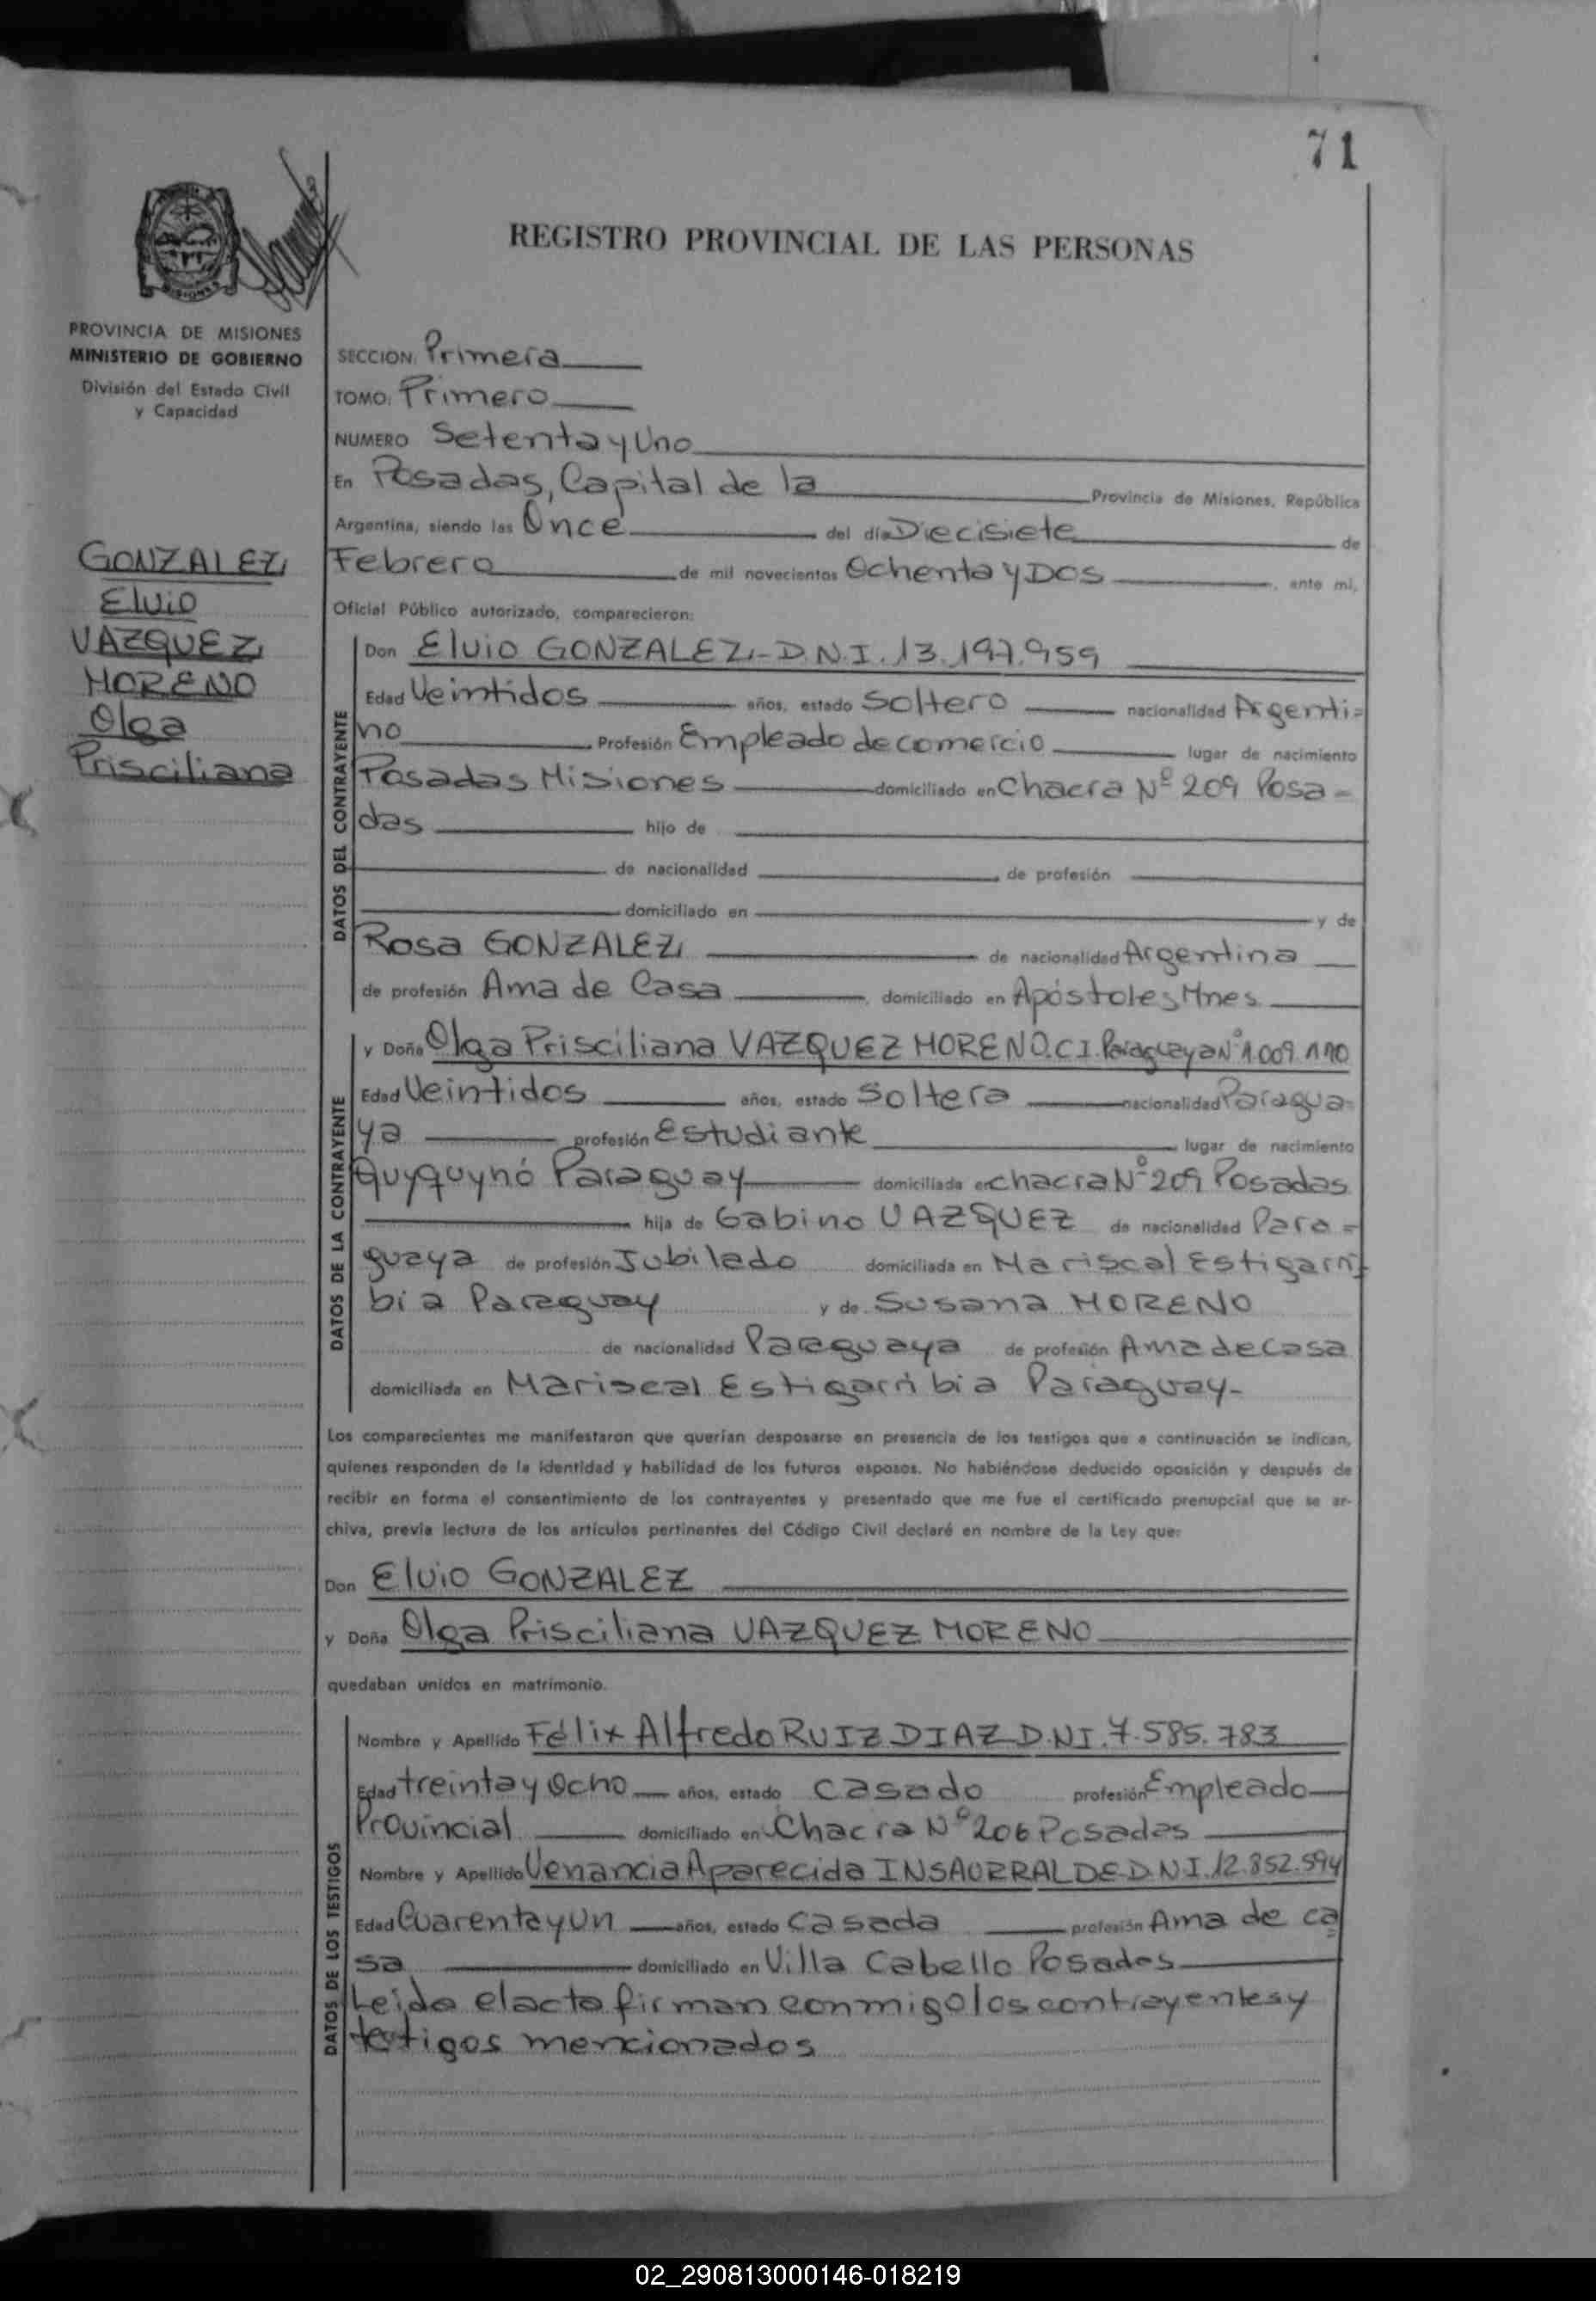 71
REGISTRO PROVINCIAL DE LAS PERSONAS
MISIONES
PROVINCIA DE MISIONES
MINISTERIO DE GOBIERNO
División del Estado Civil
y Capacidad
GONZALEZ
Elvio
VAZQUEZ
MORENO
Olga
Prisciliana
SECCION: Primera
TOMO: Primero
NUMERO Setenta y Uno
En Posadas, Capital de la Provincia de Misiones, República
Argentina, siendo las Once del día Diecisiete de
Febrero de mil novecientos Ochenta y Dos, ante mi,
Oficial Público autorizado, comparecieron:
DATOS DEL CONTRAYENTE
Don Elvio GONZALEZ - D.N.I. 13.197.959
Edad Veintidos años, estado Soltero nacionalidad Argenti=
no Profesión Empleado de comercio lugar de nacimiento
Posadas Misiones domiciliado en Chacra Nº 209 Posa-
das hijo de
de nacionalidad de profesión
domiciliado en y de
Rosa GONZALEZ de nacionalidad Argentina
de profesión Ama de Casa, domiciliado en Apóstoles Mnes
DATOS DE LA CONTRAYENTE
y Doña Olga Prisciliana VAZQUEZ MORENO. C I. Paraguaya Nº 1.009.110
Edad Veintidos años, estado Soltera nacionalidad Paragua=
ya profesión Estudiante lugar de nacimiento
Quyquynó Paraguay domiciliada en chacra Nº 209 Posadas
hija de Gabino VAZQUEZ de nacionalidad Para=
guaya de profesión Jubilado domiciliada en Mariscal Estigarri
bia Paraguay y de Susana MORENO
de nacionalidad Paraguaya de profesión Ama de Casa
domiciliada en Mariscal Estigarribia Paraguay-
Los comparecientes me manifestaron que querían desposarse en presencia de los testigos que a continuación se indican,
quienes responden de la identidad y habilidad de los futuros esposos. No habiéndose deducido oposición y después de
recibir en forma el consentimiento de los contrayentes y presentado que me fue el certificado prenupcial que se ar-
chiva, previa lectura de los artículos pertinentes del Código Civil declaré en nombre de la Ley que:
Don Elvio GONZALEZ
y Doña Olga Prisciliana VAZQUEZ MORENO
quedaban unidos en matrimonio.
DATOS DE LOS TESTIGOS
Nombre y Apellido Félix Alfredo RUIZ DIAZ D.NI. 7.585.783
Edad treinta y Ocho años, estado Casado profesión Empleado
Provincial domiciliado en Chacra Nº 206 Posadas
Nombre y Apellido Venancia Aparecida INSAURRALDE D.N.I. 12.852.594
Edad Cuarenta y Un años, estado Casada profesión Ama de ca
sa domiciliado en Villa Cabello Posadas
Leida el acta firman conmigo los contrayentes y
testigos mencionados
02_290813000146-018219